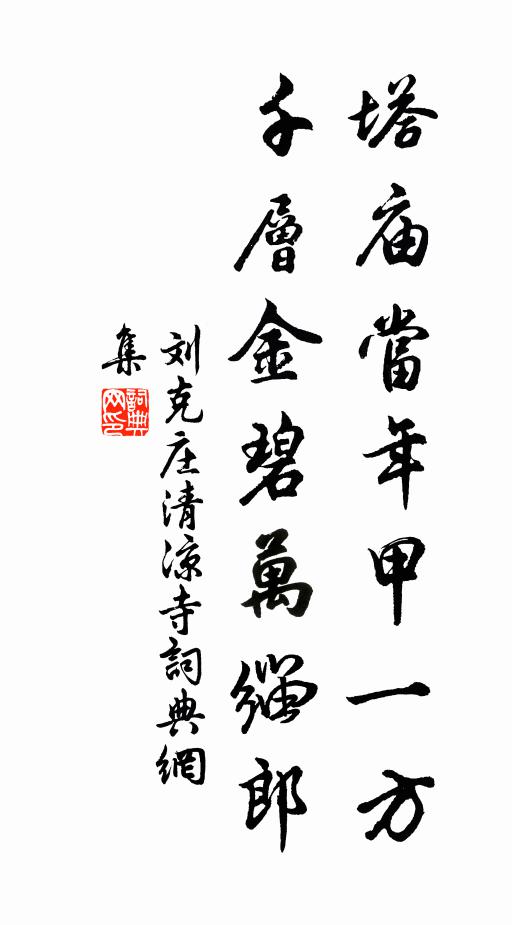 塔庙當年甲一方
千層金碧萬緇郎
刘克庄清凉寺詞典網
集
詞典
网印